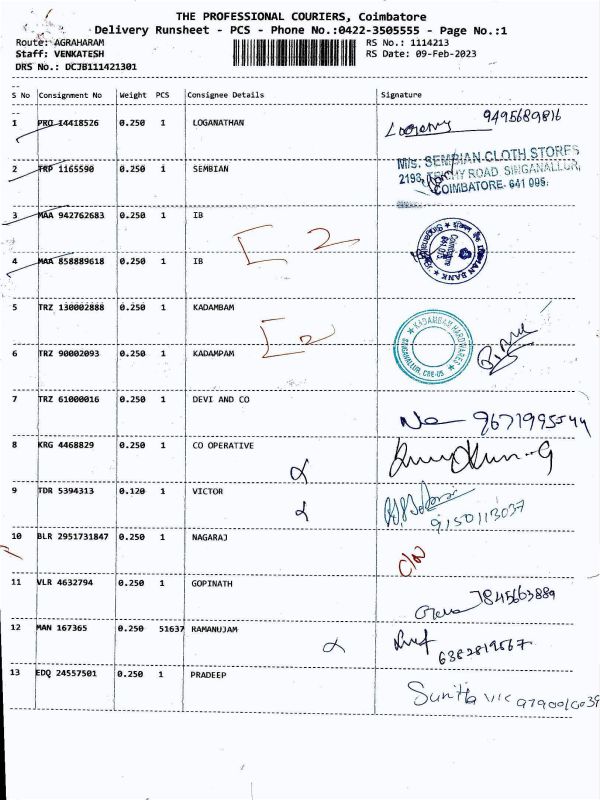 THE PROFESSIONAL COURIERS, Coimbatore
Delivery Runsheet - PCS - Phone No.:0422-3505555 - Page No.:1
Route: AGRAHARAM RS No.: 1114213
Staff: VENKATESH RS Date: 09-Feb-2023
DRS No.: DCJB111421301
S No Consignment No Weight PCS Consignee Details Signature
1 PRO 14418526 0.250 1 LOGANATHAN 9495689816
2 TRP 1165590 0.250 1 SEMBIAN
M/s. SEMBIAN CLOTH STORES
2198, TRICHY ROAD SINGANALLUR,
COIMBATORE- 641 005.
3 MAA 942762683 0.250 1 IB
[ 2
4 MAA 858889618 0.250 1 IB
INDIAN BANK
5 TRZ 130002888 0.250 1 KADAMBAM
KADAMBAM HARDWARES
SINGANALLUR, CBE-05.
6 TRZ 90002093 0.250 1 KADAMPAM
7 TRZ 61000016 0.250 1 DEVI AND CO
8 KRG 4468829 0.250 1 CO OPERATIVE
9 TDR 5394313 0.120 1 VICTOR
9150113037
10 BLR 2951731847 0.250 1 NAGARAJ C/N
11 VLR 4632794 0.250 1 GOPINATH 7845663889
12 MAN 167365 0.250 51637 RAMANUJAM
6382819567
13 EDQ 24557501 0.250 1 PRADEEP Sunitha